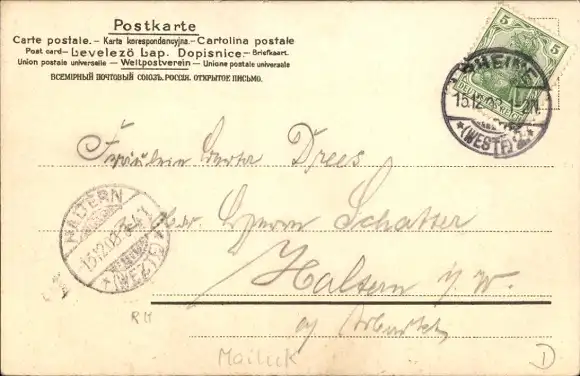 Postkarte
Carte postale. – Karta korespondencyjna. – Cartolina postale
Post card – Levelező Lap. Dopisnice. – Briefkaart.
Union postale universelle – Weltpostverein – Unione postale universale
ВСЕМІРНЫЙ ПОЧТОВЫЙ СОЮЗЪ. РОССІЯ. ОТКРЫТОЕ ПИСЬМО.
5 5
DEUTSCHES REICH
RHEINE
15.12.03
(WESTF.) 2.
Fräulein Berta Drees
Herrn Schatter
Haltern i. W.
HALTERN
15.12.03
(WESTF.)
RM
Mailick
D